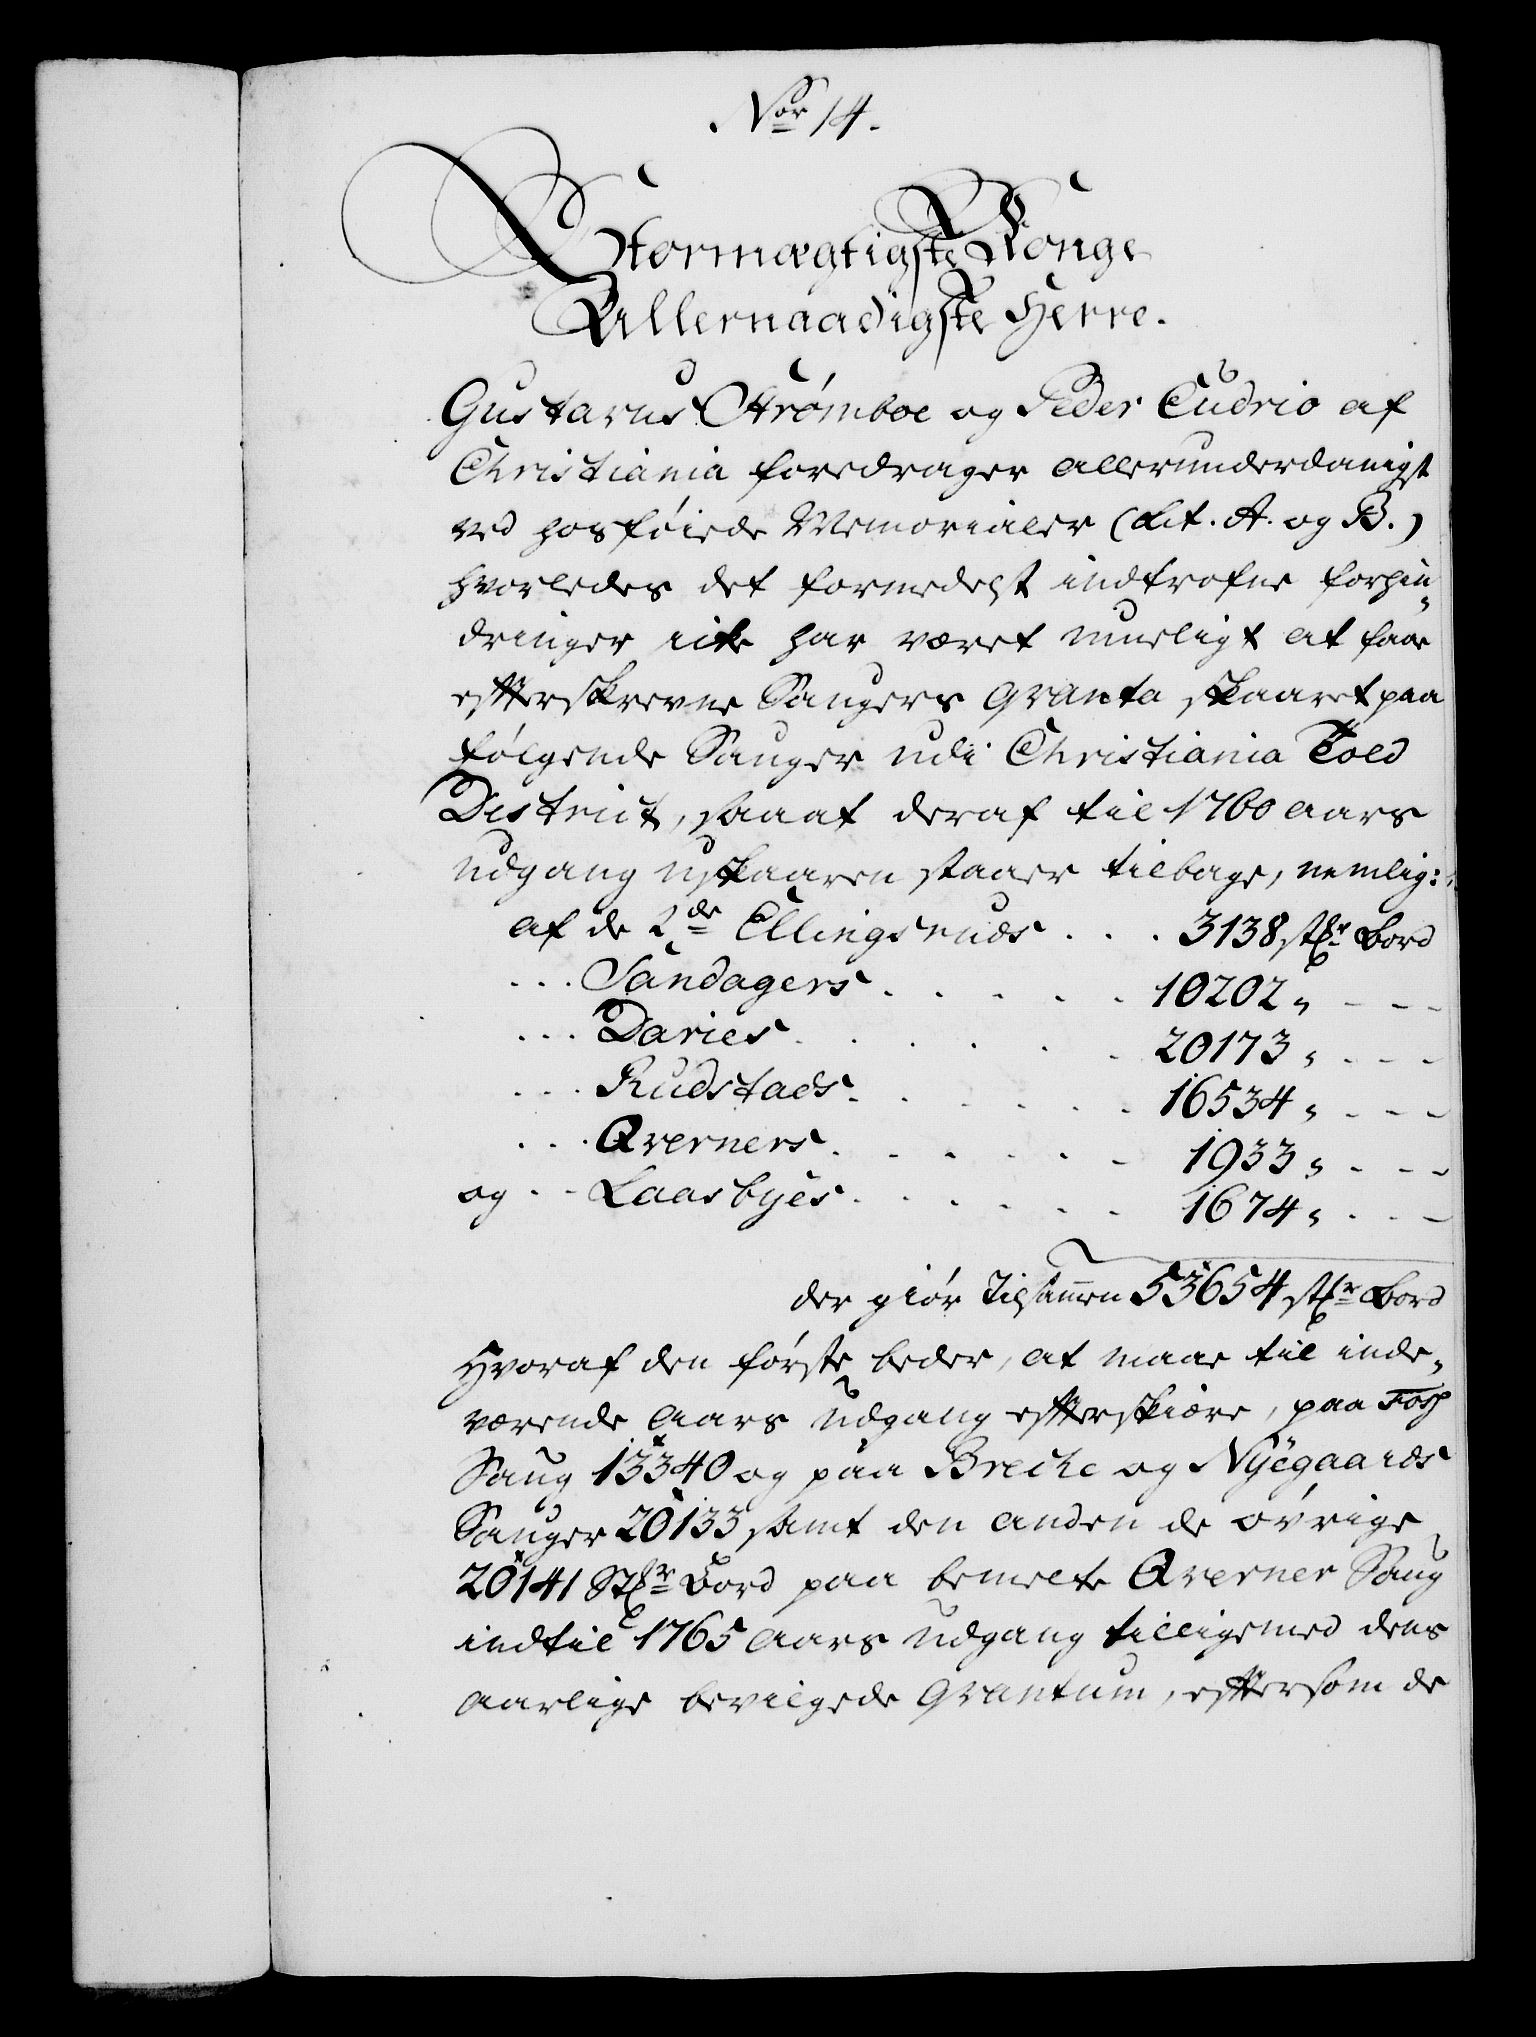 Nor 14.
Stormægtigste Konge
Allernaadigste Herre.
Gustavus Strømboe og Peder Cudrio af
Christiania foredrager allerunderdanigst
ved hosføiede Memorialer (Lit. A. og B.)
hvorledes det formedelst indtrofne forhin„
dringer icke har været mueligt at faae
efterskrevne Saugers qvanta skaaret paa
følgende Sauger udi Christiania Told
District, saaat deraf til 1760 aars
udgang uskaaren staaer tilbage, nemlig:
af de 2de Ellingsruds . . . 3138 stkr Bord
. . . Sandagers . . . . . 10202 „ - - -
. . . Davies . . . . . . 20173 „ - - -
. . . Rudstads . . . . . . 16534 „ - - -
. . . Qverners . . . . . . 1933 „ - - -
og - - Laasbyes . . . . . . 1674 „ - - -
der giør Tilsammen 53654 stkr Bord
Hvoraf den første beder, at maae til inde„
værende Aars udgang efterskiære, paa Fosh
Saug 13340 og paa Breche og Nyegaards
Sauger 20133 samt den anden de øvrige
20141 Stkr Bord paa bemelte Qverner Saug
indtil 1765 Aars udgang tilligemed dens
aarlige bevilgede qvantum, eftersom de